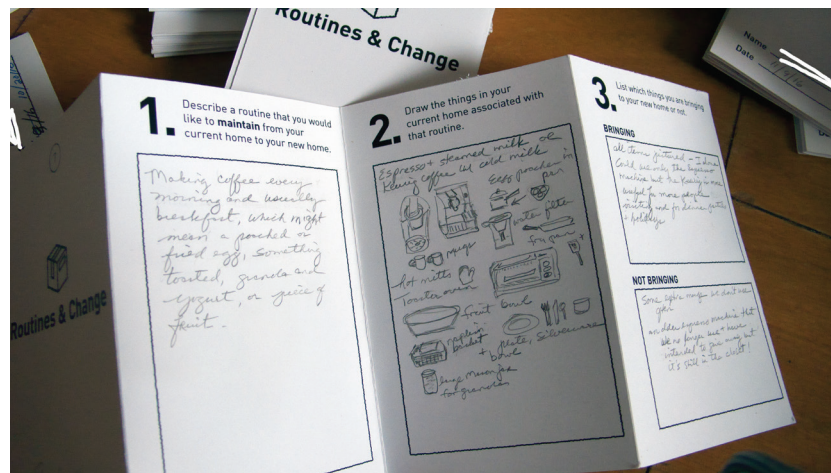 Routines & Change
Name
Date
1.
Describe a routine that you would
like to maintain from your
current home to your new home.
Making coffee every
morning and usually
breakfast, which might
mean a poached or
fried egg, something
toasted, granola and
yogurt, or piece of
fruit.
2.
Draw the things in your
current home associated with
that routine.
Espresso + steamed milk or
Keurig coffee w/ cold milk
Egg poacher in
pan
water filter
mugs
fry pan +
hot mitts
Toaster oven
fruit bowl
napkin
basket
plate, silverware
+ bowl
large mason jar
for granola
3.
List which things you are bringing
to your new home or not.
BRINGING
all items pictured - I
could use only the Espresso
machine but the Keurig is more
useful for more people
visiting and for dinner parties
+ holidays
NOT BRINGING
Some extra mugs we don't use
often
an older espresso machine that
we no longer use + have
intended to give away but
it's still in the closet!
Routines & Change